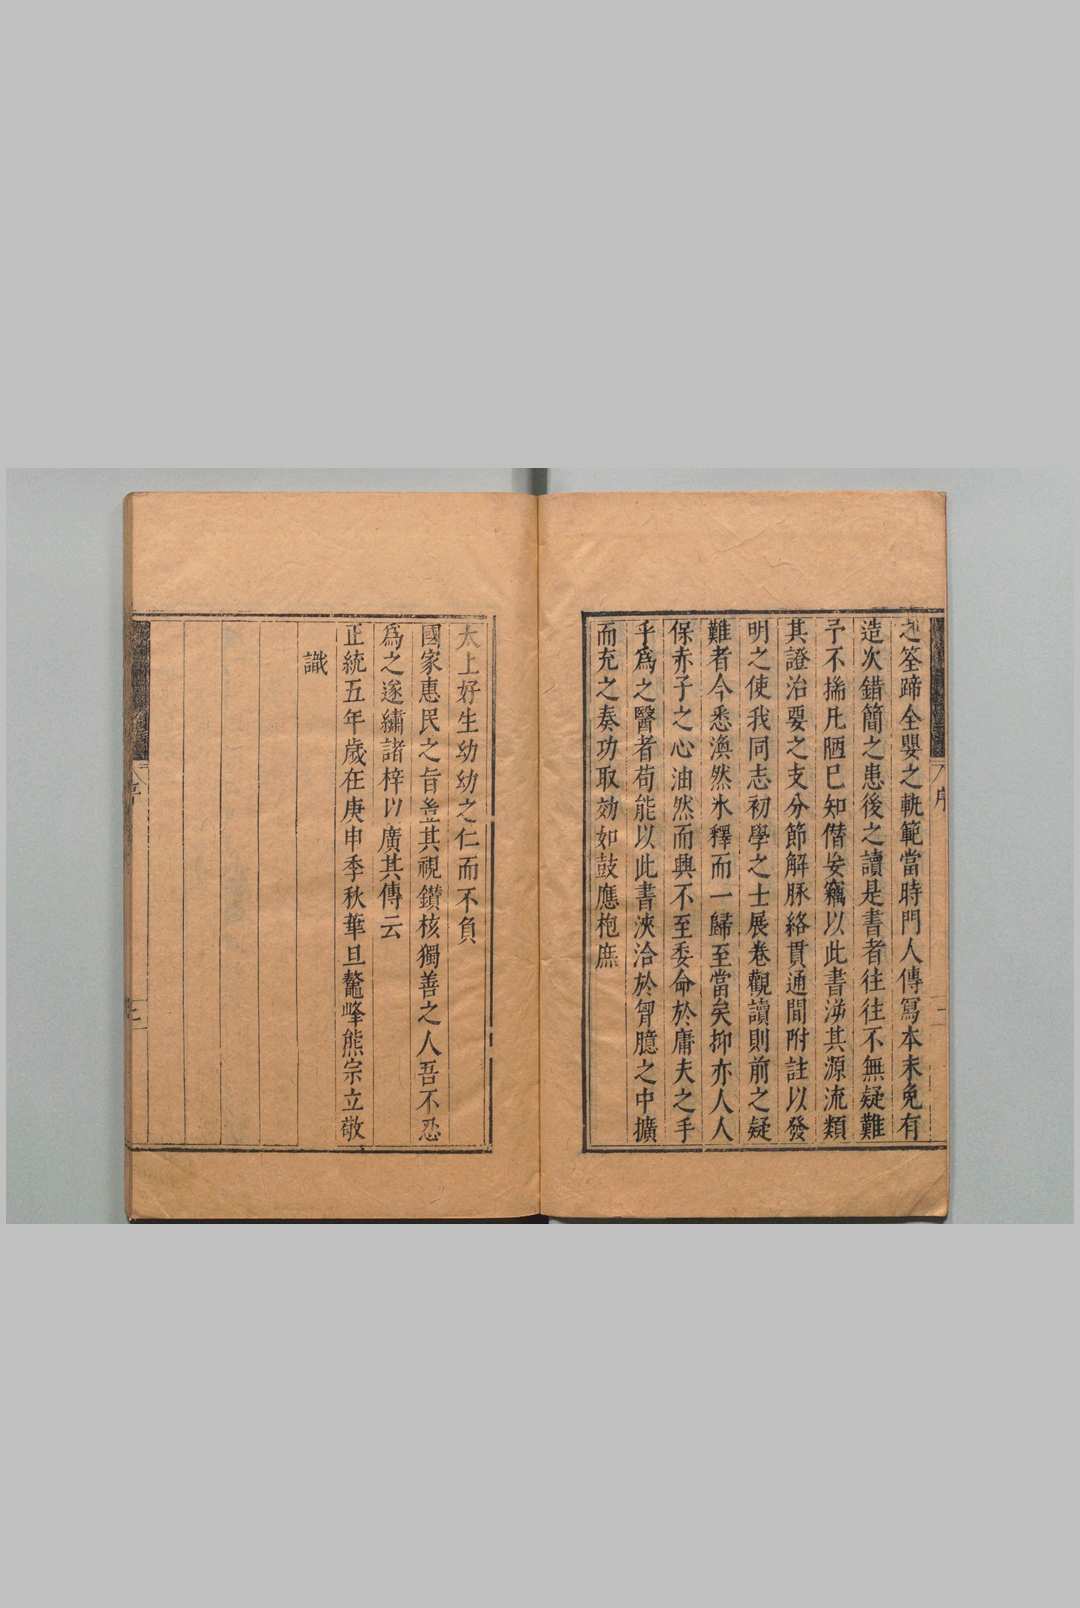 之筌蹄全嬰之軌範當時門人傳寫本未免有
造次錯簡之患後之讀是書者往往不無疑難
予不揣凡陋已知僭妄竊以此書泝其源流類
其證治要之支分節解脉絡貫通間附註以發
明之使我同志初學之士展卷觀讀則前之疑
難者今悉渙然氷釋而一歸至當矣抑亦人人
保赤子之心油然而興不至委命於庸夫之手
乎爲之醫者苟能以此書浹洽於胷臆之中擴
而充之奏功取効如鼓應枹庶
序
太上好生幼幼之仁而不負
國家惠民之旨盖其視鑚核獨善之人吾不忍
爲之遂繡諸梓以廣其傳云
正統五年歲在庚申季秋華旦鼇峰熊宗立敬
識